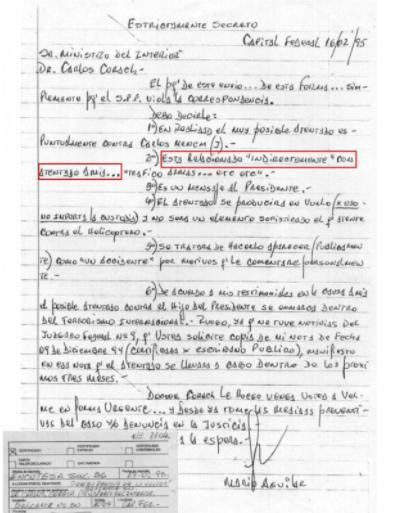 ESTRICTAMENTE SECRETO
CAPITAL FEDERAL 16/02/95
SR. MINISTRO DEL INTERIOR
DR. CARLOS CORACH.-
EL PQ' DE ESTE ENVIO... DE ESTA FORMA... SIM-
PLEMENTE PQ' EL S.P.F. VIOLA LA CORRESPONDENCIA.
DEBO DECIRLE:
1º) EN REALIDAD EL MUY POSIBLE ATENTADO ES
PUNTUALMENTE CONTRA CARLOS MENEM (J).-
2º) ESTA RELACIONADO "INDIRECTAMENTE" CON
ATENTADO AMIA... "TRAFICO ARMAS... ETC ETC".-
3º) ES UN MENSAJE AL PRESIDENTE.-
4º) EL ATENTADO SE PRODUCIRA EN VUELO (X ESO
NO IMPORTA LA CUSTODIA) Y NO SERA UN ELEMENTO SOFISTICADO EL Q' ATENTE
CONTRA EL HELICOPTERO.-
5º) SE TRATARA DE HACERLO APARECER (PUBLICAMEN
TE) COMO "UN ACCIDENTE" POR MOTIVOS Q' LE COMENTARE PERSONALMEN
TE.-
6º) DE ACUERDO A MIS TESTIMONIOS EN LA CAUSA AMIA
EL POSIBLE ATENTADO CONTRA EL HIJO DEL PRESIDENTE SE ENMARCA DENTRO
DEL TERRORISMO INTERNACIONAL.- RUEGO, YA Q' NO TUVE NOTICIAS DEL
JUZGADO FEDERAL Nº 9, Q' USTED SOLICITE COPIA DE MI NOTA DE FECHA
09 DE DICIEMBRE 94 (CERTIFICADA X ESCRIBANO PUBLICO), MANIFIESTO
EN ESA NOTA Q' EL ATENTADO SE LLEVARA A CABO DENTRO DE LOS PROXI
MOS TRES MESES.-
DOCTOR CORACH LE RUEGO VENGA USTED A VER-
ME EN FORMA URGENTE... Y DESDE YA TOME LAS MEDIDAS PREVENTI-
VAS DEL CASO Y/O DENUNCIA EN LA JUSTICIA
A LA ESPERA.-
MARIO AGUILAR
CERTIFICADO